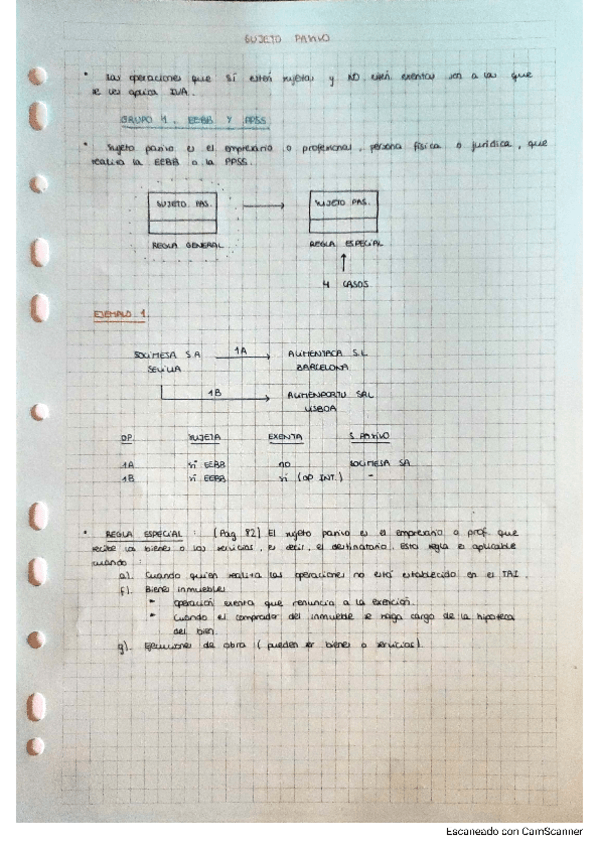 SUJETO PASIVO
• Las operaciones que sí estén sujetas y NO estén exentas son a las que
se les aplica IVA.
GRUPO 1. EEBB Y PPSS
• Sujeto pasivo es el empresario o profesional, persona física o jurídica, que
realiza la EEBB o la PPSS.
SUJETO PAS. → SUJETO PAS.
REGLA GENERAL REGLA ESPECIAL
4 CASOS
EJEMPLO 1.
SOLIMESA S.A 1A ALIMENTACA S.L
SEVILLA BARCELONA
1B ALIMENPORTU SAL
LISBOA
OP SUJETA EXENTA S. PASIVO
1A sí EEBB no SOLIMESA SA
1B sí EEBB sí (OP INT.) -
• REGLA ESPECIAL: (Pag 82) El sujeto pasivo es el empresario o prof. que
recibe los bienes o los servicios, es decir, el destinatario. Esta regla es aplicable
cuando:
a). Cuando quien realiza las operaciones no está establecido en el TAI.
f). Bienes inmuebles
- Operación exenta que renuncia a la exención.
- Cuando el comprador del inmueble se haga cargo de la hipoteca
del bien.
g). Ejecuciones de obra (pueden ser bienes o servicios).
Escaneado con CamScanner